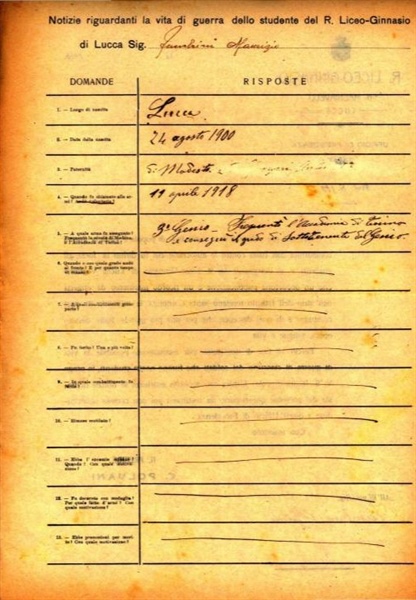 Notizie riguardanti la vita di guerra dello studente del R. Liceo-Ginnasio
di Lucca Sig. Maurizio
DOMANDE
RISPOSTE
1. — Luogo di nascita
Lucca
2. — Data della nascita
24 agosto 1900
3. — Paternità
di Modesto e
4. — Quando fu chiamato alle armi
19 aprile 1918
5. — A quale arma fu assegnato?
Frequentò la scuola di Modena
o l'Accademia di Torino?
3° Genio - Frequentò l'Accademia di Torino
e conseguì il grado di Sottotenente del Genio.
6. Quando e con quale grado andò
al fronte? E per quanto tempo
vi rimase?
7. — A quali combattimenti
8. — Fu ferito? Una o più volte?
9. — In quale combattimento fu
ferito?
10. — Rimase mutilato?
11. — Ebbe
Quando? Con quale
12. — Fu decorato con medaglia?
Per quale fatto d'arme? Con
quale motivazione?
13. — Ebbe promozioni per merito?
Con quale motivazione?